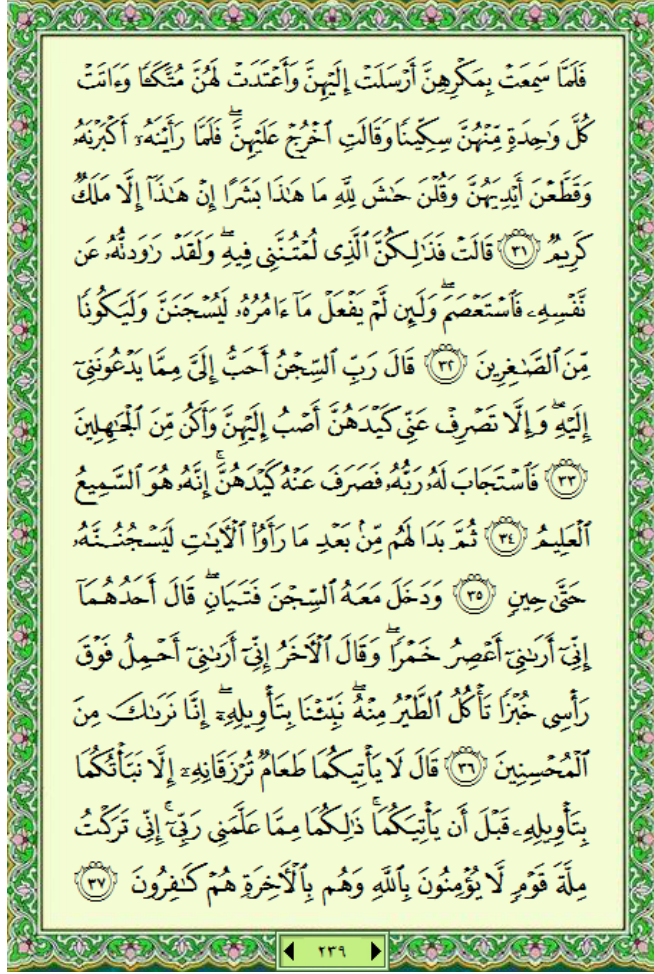 فَلَمَّا سَمِعَتْ بِمَكْرِهِنَّ أَرْسَلَتْ إِلَيْهِنَّ وَأَعْتَدَتْ لَهُنَّ مُتَّكَـًٔا وَءَاتَتْ
كُلَّ وَٰحِدَةٍ مِّنْهُنَّ سِكِّينًا وَقَالَتِ ٱخْرُجْ عَلَيْهِنَّ ۖ فَلَمَّا رَأَيْنَهُۥٓ أَكْبَرْنَهُۥ
وَقَطَّعْنَ أَيْدِيَهُنَّ وَقُلْنَ حَـٰشَ لِلَّهِ مَا هَـٰذَا بَشَرًا إِنْ هَـٰذَآ إِلَّا مَلَكٌ
كَرِيمٌ ﴿٣١﴾ قَالَتْ فَذَٰلِكُنَّ ٱلَّذِى لُمْتُنَّنِى فِيهِ ۖ وَلَقَدْ رَٰوَدتُّهُۥ عَن
نَّفْسِهِۦ فَٱسْتَعْصَمَ ۖ وَلَئِن لَّمْ يَفْعَلْ مَآ ءَامُرُهُۥ لَيُسْجَنَنَّ وَلَيَكُونًا
مِّنَ ٱلصَّـٰغِرِينَ ﴿٣٢﴾ قَالَ رَبِّ ٱلسِّجْنُ أَحَبُّ إِلَىَّ مِمَّا يَدْعُونَنِىٓ
إِلَيْهِ ۖ وَإِلَّا تَصْرِفْ عَنِّى كَيْدَهُنَّ أَصْبُ إِلَيْهِنَّ وَأَكُن مِّنَ ٱلْجَـٰهِلِينَ
﴿٣٣﴾ فَٱسْتَجَابَ لَهُۥ رَبُّهُۥ فَصَرَفَ عَنْهُ كَيْدَهُنَّ ۚ إِنَّهُۥ هُوَ ٱلسَّمِيعُ
ٱلْعَلِيمُ ﴿٣٤﴾ ثُمَّ بَدَا لَهُم مِّنۢ بَعْدِ مَا رَأَوُا۟ ٱلْـَٔايَـٰتِ لَيَسْجُنُنَّهُۥ
حَتَّىٰ حِينٍ ﴿٣٥﴾ وَدَخَلَ مَعَهُ ٱلسِّجْنَ فَتَيَانِ ۖ قَالَ أَحَدُهُمَآ
إِنِّىٓ أَرَىٰنِىٓ أَعْصِرُ خَمْرًا ۖ وَقَالَ ٱلْـَٔاخَرُ إِنِّىٓ أَرَىٰنِىٓ أَحْمِلُ فَوْقَ
رَأْسِى خُبْزًا تَأْكُلُ ٱلطَّيْرُ مِنْهُ ۖ نَبِّئْنَا بِتَأْوِيلِهِۦٓ ۖ إِنَّا نَرَىٰكَ مِنَ
ٱلْمُحْسِنِينَ ﴿٣٦﴾ قَالَ لَا يَأْتِيكُمَا طَعَامٌ تُرْزَقَانِهِۦٓ إِلَّا نَبَّأْتُكُمَا
بِتَأْوِيلِهِۦ قَبْلَ أَن يَأْتِيَكُمَا ۚ ذَٰلِكُمَا مِمَّا عَلَّمَنِى رَبِّىٓ ۚ إِنِّى تَرَكْتُ
مِلَّةَ قَوْمٍ لَّا يُؤْمِنُونَ بِٱللَّهِ وَهُم بِٱلْـَٔاخِرَةِ هُمْ كَـٰفِرُونَ ﴿٣٧﴾
٢٣٩